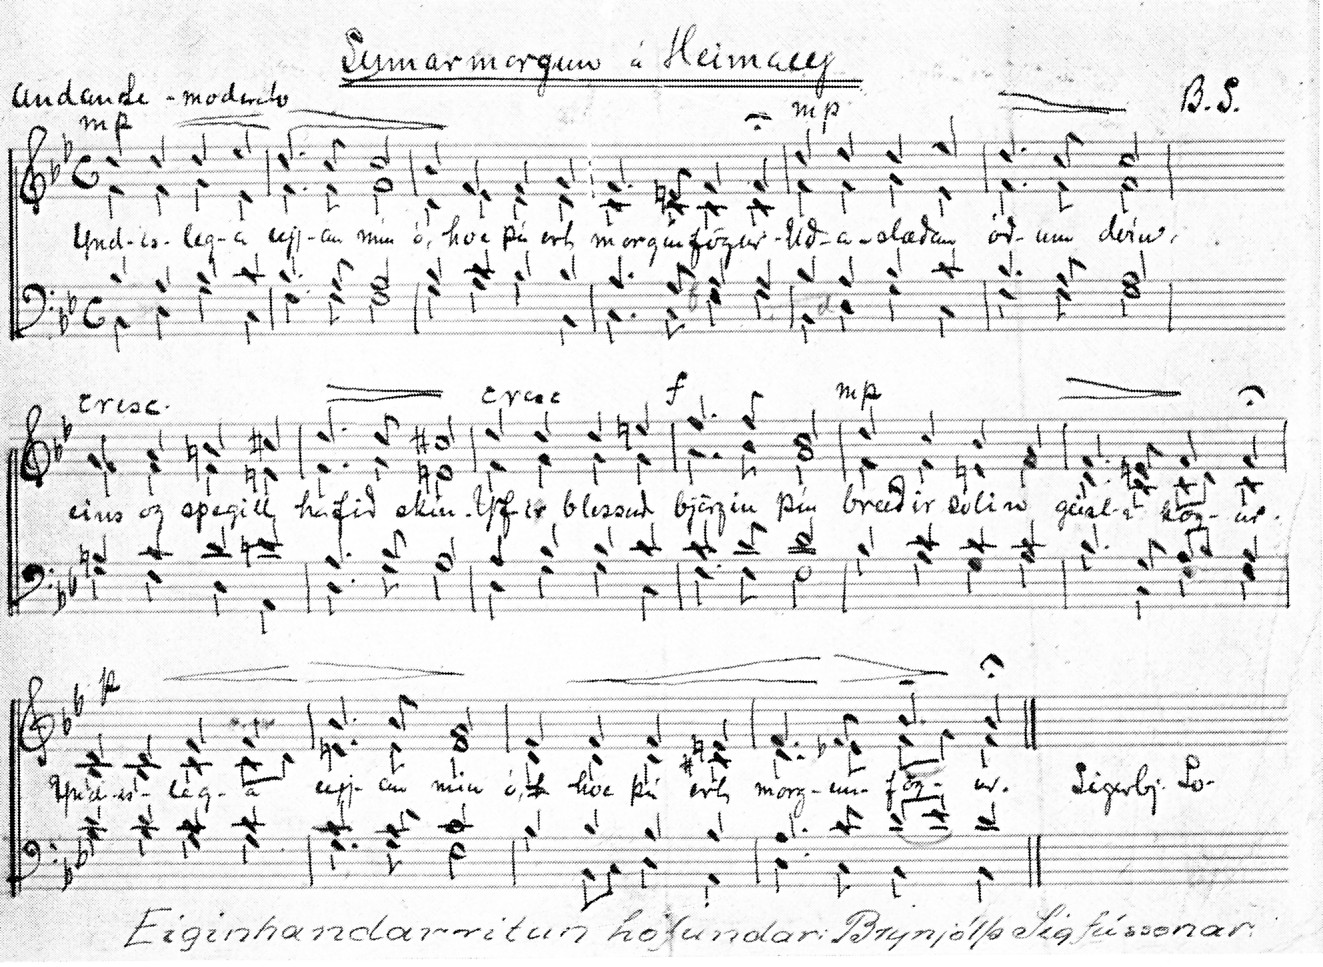 Sumarmorgun á Heimaey
Andante - moderato
B.S.
mp
mp
Ynd-is-leg-a eyj-an mín ó, hve þú ert morgunfögur. Úð-a-slæðan óð-um dvín,
cresc.
cresc
f
mp
eins og spegill hafið skín. Yf-ir blessuð björgin þín bræðir sólin gull-i
p
Ynd-is-leg-a eyj-an mín ó, hve þú ert morg-un-fög-ur. Sigurbj. Sv-
Eiginhandarritun höfundar: Brynjólfs Sigfússonar.